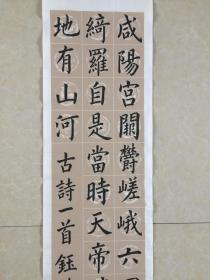 咸陽宮闕鬱嵯峨六
綺羅自是當時天帝
地有山河 古詩一首 鈺